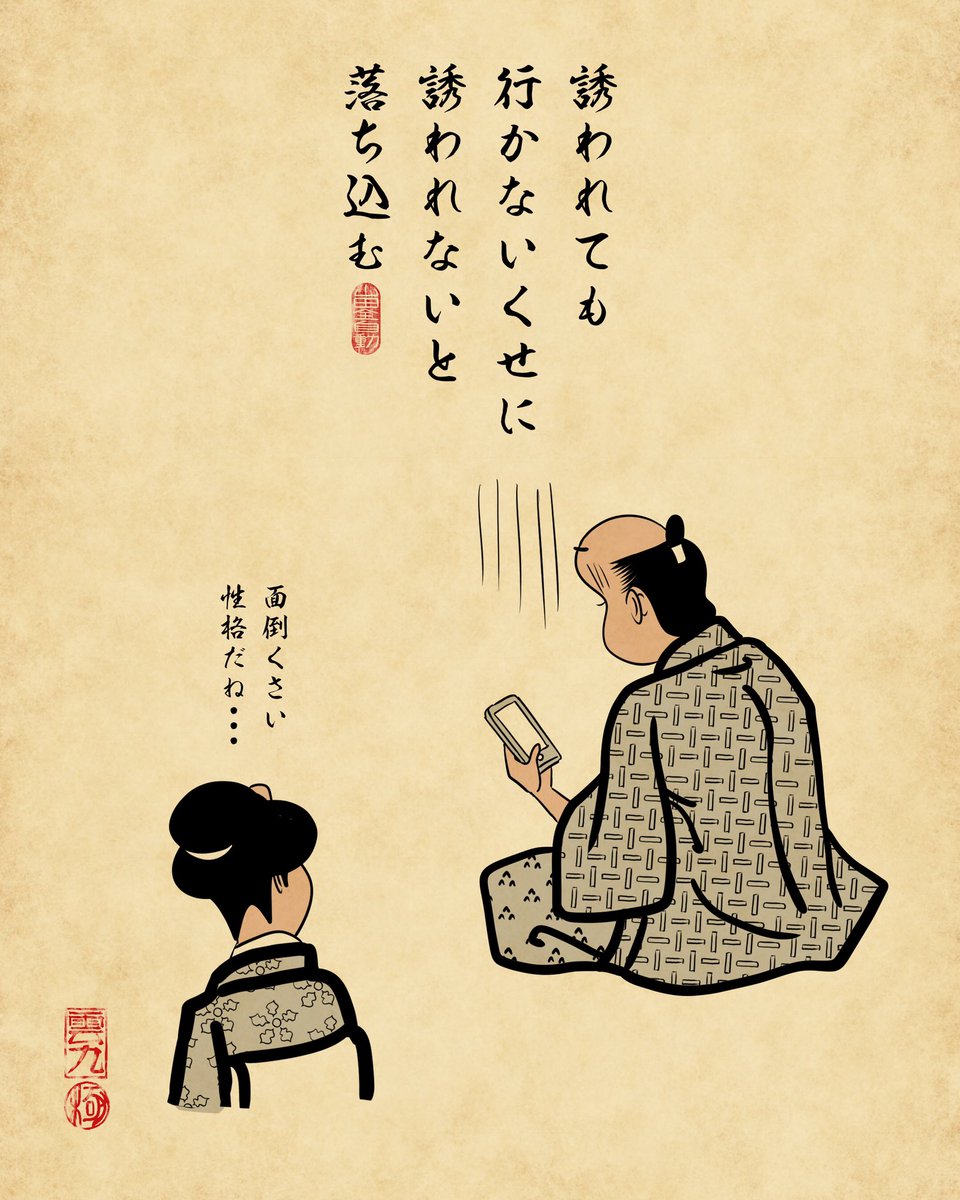 誘われても
行かないくせに
誘われないと
落ち込む
面倒くさい
性格だね・・・